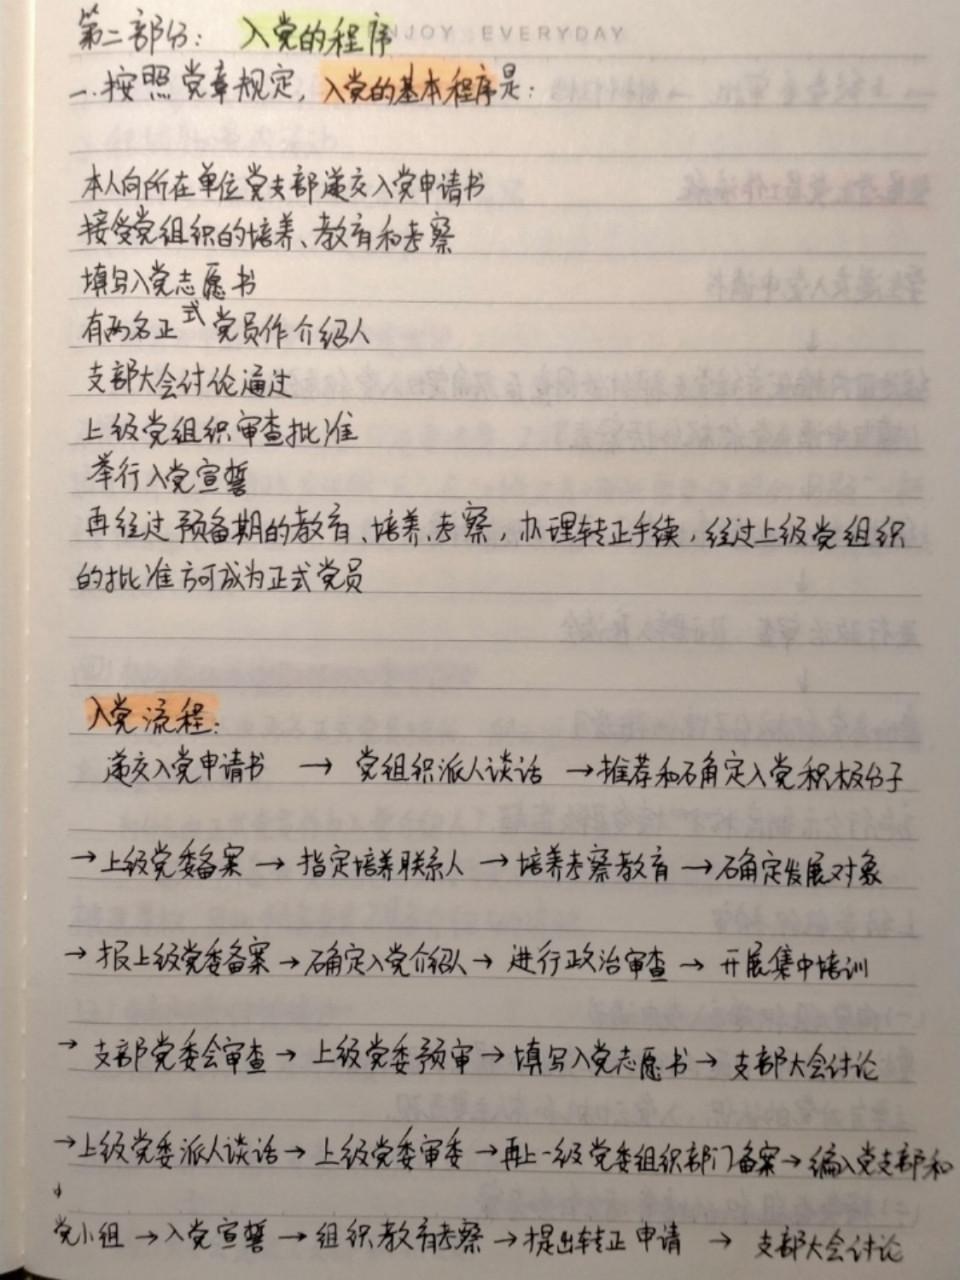 ENJOY EVERYDAY
第二部分：入党的程序
一.按照党章规定，入党的基本程序是：
本人向所在单位党支部递交入党申请书
接受党组织的培养、教育和考察
填写入党志愿书
有两名正式党员作介绍人
支部大会讨论通过
上级党组织审查批准
举行入党宣誓
再经过预备期的教育、培养、考察，办理转正手续，经过上级党组织
的批准方可成为正式党员
入党流程：
递交入党申请书 → 党组织派人谈话 → 推荐和确定入党积极分子
→ 上级党委备案 → 指定培养联系人 → 培养考察教育 → 确定发展对象
→ 报上级党委备案 → 确定入党介绍人 → 进行政治审查 → 开展集中培训
→ 支部党委会审查 → 上级党委预审 → 填写入党志愿书 → 支部大会讨论
→ 上级党委派人谈话 → 上级党委审委 → 再上一级党委组织部门备案 → 编入党支部和
↓
党小组 → 入党宣誓 → 组织教育考察 → 提出转正申请 → 支部大会讨论